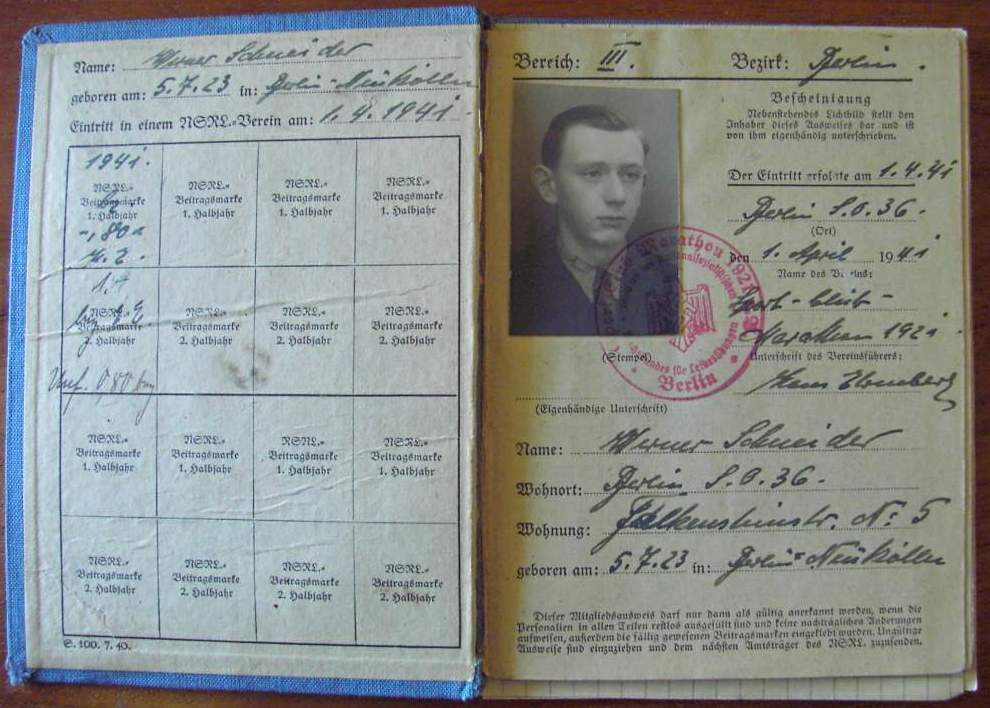 Name: Werner Schneider
geboren am: 5.7.23 in: Berlin-Neukölln
Eintritt in einem NSRL.=Verein am: 1.4.1941.
1941.
NSRL.= Beitragsmarke 1. Halbjahr
NSRL.= Beitragsmarke 1. Halbjahr
NSRL.= Beitragsmarke 1. Halbjahr
NSRL.= Beitragsmarke 1. Halbjahr
NSRL.= Beitragsmarke 2. Halbjahr
NSRL.= Beitragsmarke 2. Halbjahr
NSRL.= Beitragsmarke 2. Halbjahr
NSRL.= Beitragsmarke 2. Halbjahr
NSRL.= Beitragsmarke 1. Halbjahr
NSRL.= Beitragsmarke 1. Halbjahr
NSRL.= Beitragsmarke 1. Halbjahr
NSRL.= Beitragsmarke 1. Halbjahr
NSRL.= Beitragsmarke 2. Halbjahr
NSRL.= Beitragsmarke 2. Halbjahr
NSRL.= Beitragsmarke 2. Halbjahr
NSRL.= Beitragsmarke 2. Halbjahr
S. 100. 7. 40.
Bereich: III. Bezirk: Berlin.
Bescheinigung
Nebenstehendes Lichtbild stellt den
Inhaber dieses Ausweises dar und ist
von ihm eigenhändig unterschrieben.
Der Eintritt erfolgte am 1.4.41
Berlin S.O.36.
(Ort)
den 1. April 1941
Name des Vereins:
Sport-Club-
Marathon 1921.
(Stempel) Unterschrift des Vereinsführers:
Hans
Marathon 192
für Leibesübungen
Berlin
(Eigenhändige Unterschrift)
Name: Werner Schneider
Wohnort: Berlin S.O.36.
Wohnung: Falkensteinstr. No 5
geboren am: 5.7.23 in: Berlin=Neukölln
Dieser Mitgliedsausweis darf nur dann als gültig anerkannt werden, wenn die
Personalien in allen Teilen restlos ausgefüllt sind und keine nachträglichen Änderungen
aufweisen, außerdem die fällig gewesenen Beitragsmarken eingeklebt wurden. Ungültige
Ausweise sind einzuziehen und dem nächsten Amtsträger des NSRL zuzusenden.